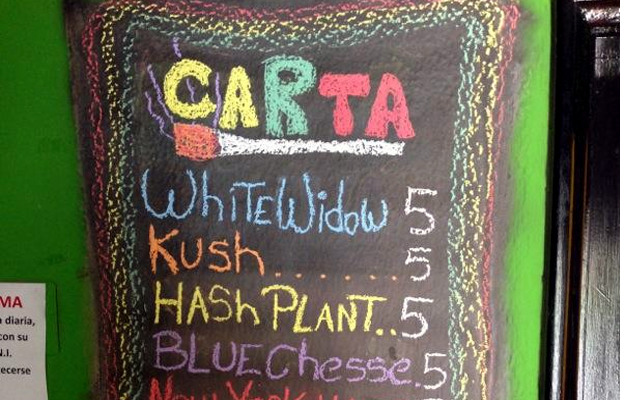 CARTA
WHITEWIDOW 5
KUSH...... 5
HASH PLANT.. 5
BLUE CHesse. 5
New York
MA
diaria,
con su
N.I.
ecerse